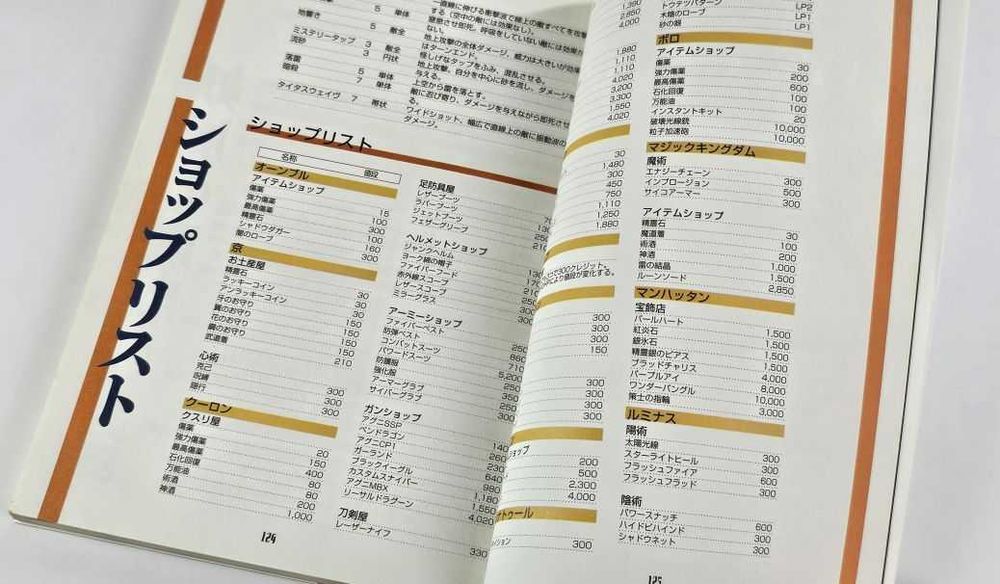 地響き 5 単体
ミステリータップ 3 敵全
流砂 3 円状
落雷 5 単体
暗殺 7 単体
タイタスウェイヴ 7 帯状
一直線に伸びる衝撃波で線上の敵すべてを攻撃
する（空中の敵には効果なし）。
窒息させ即死。呼吸をしていない敵には効果が
ない。
地上攻撃の全体ダメージ、威力は大きいが効率
はターンエンド。
怪しげなタップをふみ、混乱させる。
地上攻撃。自分を中心に砂を流し、ダメージを
与える。
上空から雷を落とす。
敵に忍び寄り、ダメージを与えながら即死させ
る。
ワイドショット、幅広で直線上の敵に振動波の
ダメージ。
ショップリスト
ショップリスト
名称 値段
オーンブル
アイテムショップ
傷薬 15
強力傷薬 100
最高傷薬 300
精霊石 100
シャドウダガー 160
闇のローブ 300
京
お土産屋
精霊石 30
ラッキーコイン 30
アンラッキーコイン 30
牙のお守り 150
翼のお守り 150
花のお守り 150
鋼のお守り 150
武道着 210
心術
克己 300
呪縛 300
隠行 300
クーロン
クスリ屋
傷薬 20
強力傷薬 150
最高傷薬 400
石化回復 80
万能油 80
術酒 200
神酒 1,000
124
足防具屋
レザーブーツ
ラバーブーツ
ジェットブーツ
フェザーグリーブ
ヘルメットショップ
ジャンクヘルム
ヨーク綿の帽子
ファイバーフード
赤外線スコープ
レザースコープ
ミラーグラス
アーミーショップ
ファイバーベスト
防弾ベスト 250
コンバットスーツ 860
パワードスーツ 710
防護服 5,200
強化服 250
アーマーグラブ 350
サイバーグラブ 250
300
ガンショップ
アグニSSP 140
ペンドラゴン 260
アグニCP1 230
ガーランド 640
ブラックイーグル 980
カスタムスナイパー 1,180
アグニMBX 1,550
リーサルドラグーン 4,020
刀剣屋
レーザーナイフ 330
1,390
2,850
4,000
1,880
1,110
1,110
4,020
3,200
3,300
1,550
4,020
30
1,480
300
450
750
1,110
1,250
1,880
300クレジット。
より値段が変化する。
300
300
300
150
300
300
300
300
ショップ
200
500
2,300
4,000
オトゥール
300
トウテツパターン LP2
木陰のローブ LP1
砂の器 LP1
ボロ
アイテムショップ
傷薬 30
強力傷薬 200
最高傷薬 600
石化回復 100
万能油 100
インスタントキット 20
破壊光線銃 10,000
粒子加速砲 10,000
マジックキングダム
魔術
エナジーチェーン 300
インプロージョン 500
サイコアーマー 300
アイテムショップ
精霊石 30
魔道着 100
術酒 200
神酒 1,000
雷の結晶 1,500
ルーンソード 2,850
マンハッタン
宝飾店
パールハート 1,500
紅炎石 1,500
銀氷石 1,500
精霊銀のピアス 1,500
ブラッドチャリス 4,000
パープルアイ 8,000
ワンダーバングル 10,000
策士の指輪 3,000
ルミナス
陽術
太陽光線 300
スターライトヒール 300
フラッシュファイア 600
フラッシュフラッド 300
陰術
パワースナッチ 600
ハイドビハインド 300
シャドウネット 300
125